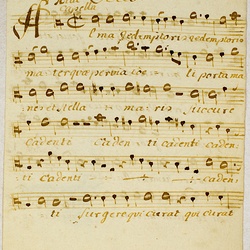 Alma redemptoris redemptoris
mater qua pervia coeli porta ma
nes et stella maris succure
cadenti caden ti cadenti caden
ti cadenti
ti surgere qui curat qui curat